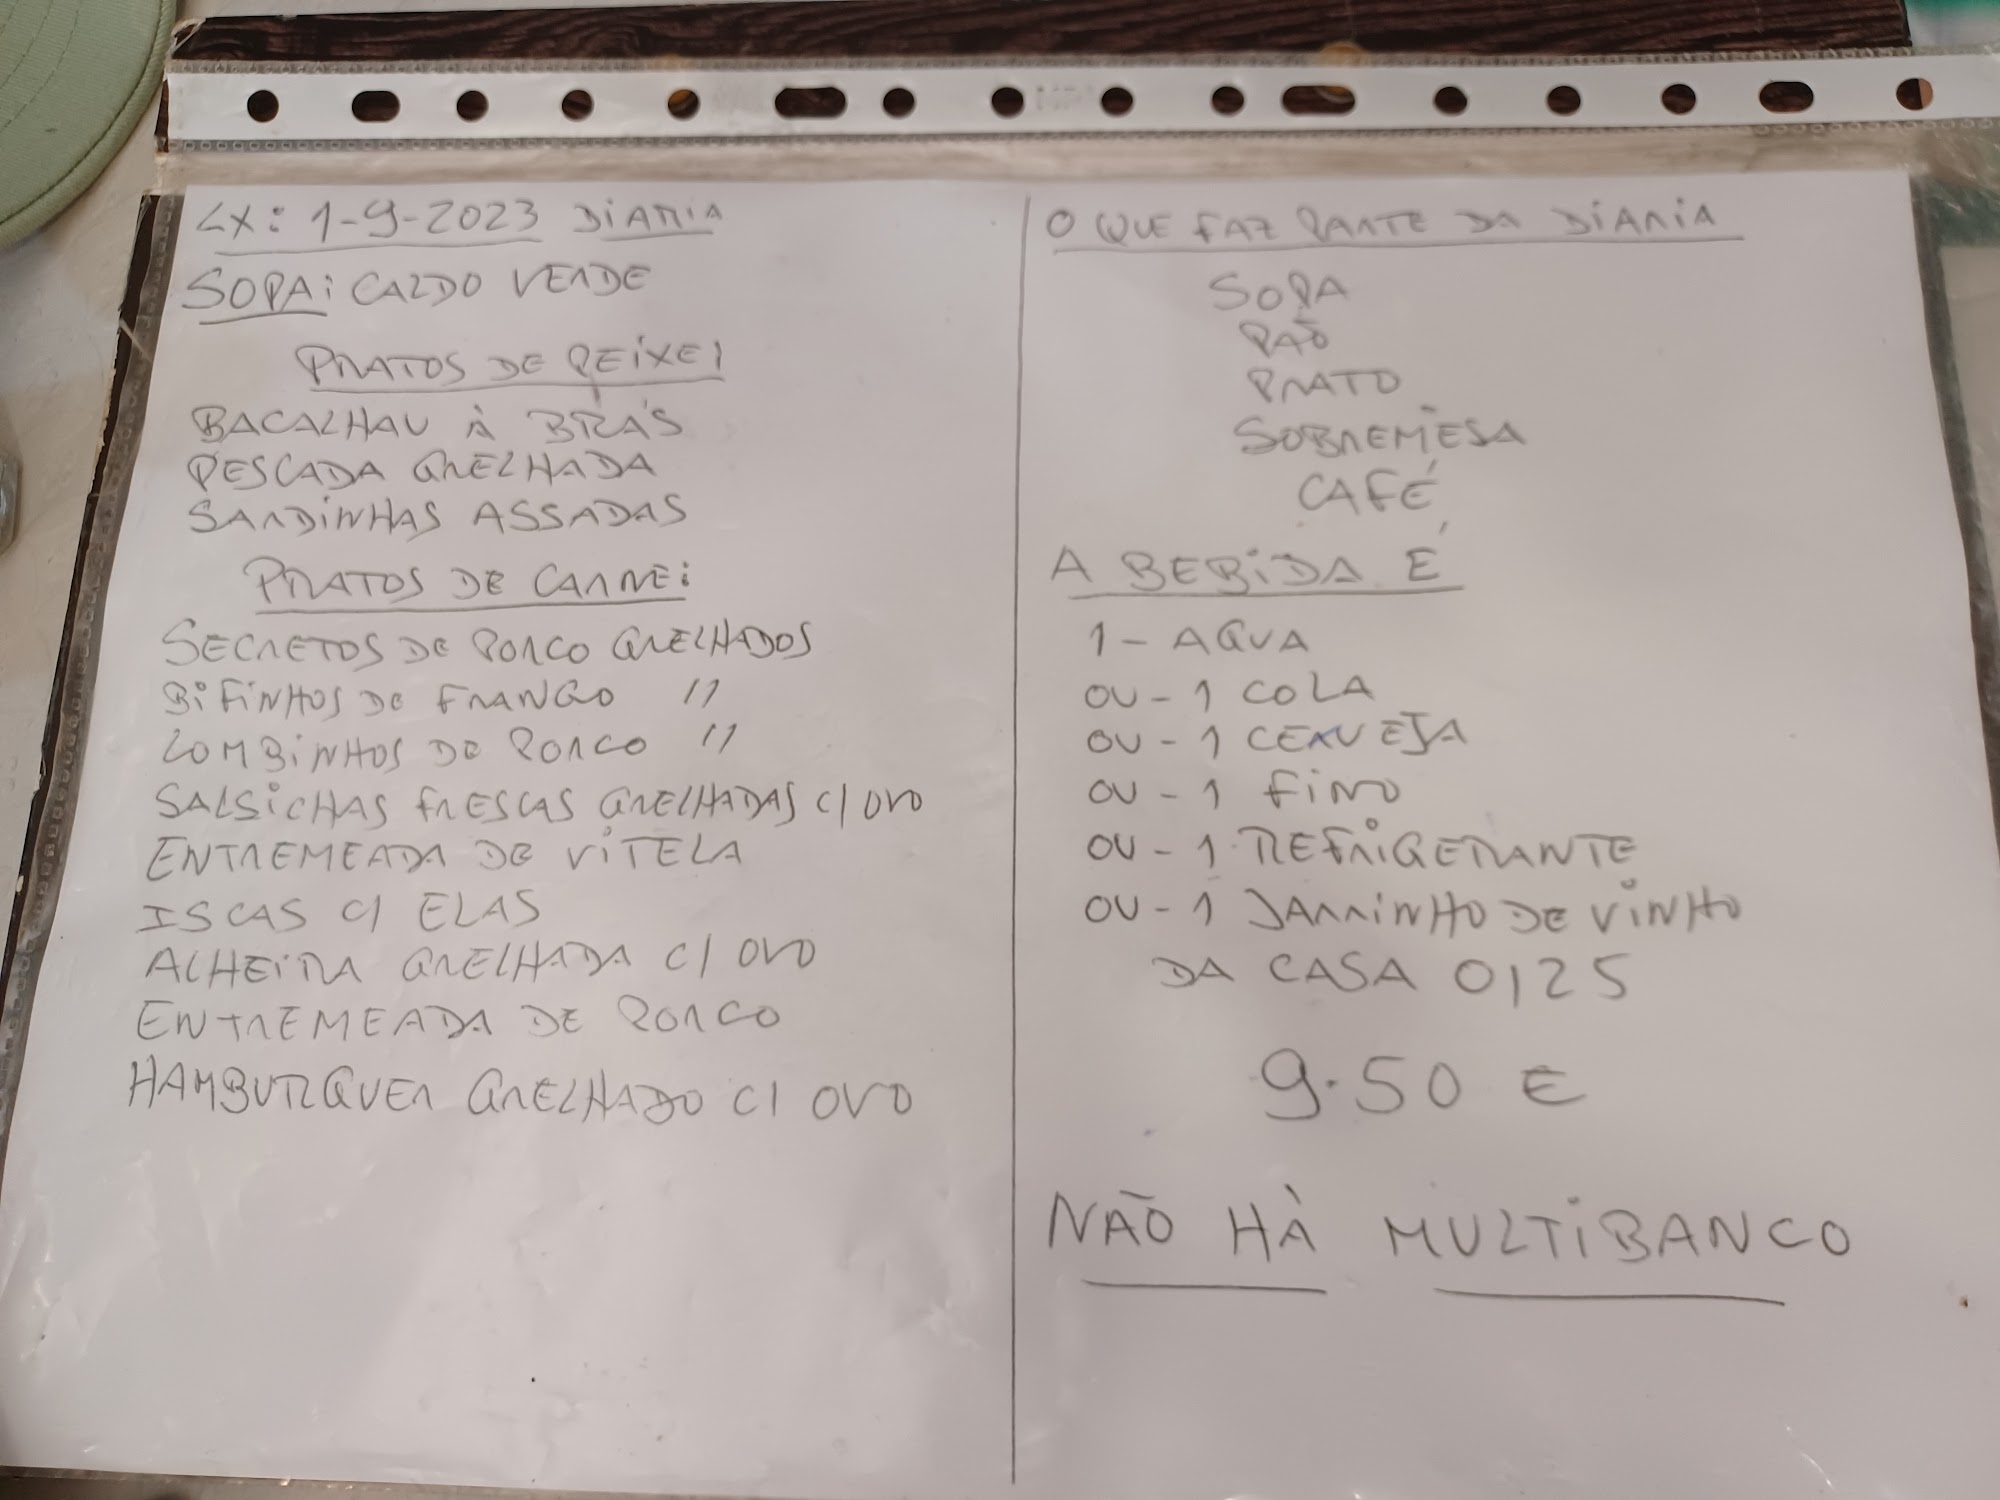 LX: 1-9-2023 DIARIA
SOPA: CALDO VERDE
PRATOS DE PEIXE:
BACALHAU À BRÁS
PESCADA GRELHADA
SARDINHAS ASSADAS
PRATOS DE CARNE:
SECRETOS DE PORCO GRELHADOS
BIFINHOS DE FRANGO "
LOMBINHOS DE PORCO "
SALSICHAS FRESCAS GRELHADAS C/ OVO
ENTREMEADA DE VITELA
ISCAS C/ ELAS
ALHEIRA GRELHADA C/ OVO
ENTREMEADA DE PORCO
HAMBURGUER GRELHADO C/ OVO
O QUE FAZ PARTE DA DIARIA
SOPA
PÃO
PRATO
SOBREMESA
CAFÉ
A BEBIDA É
1 - AGUA
OU - 1 COLA
OU - 1 CERVEJA
OU - 1 FINO
OU - 1 REFRIGERANTE
OU - 1 JARRINHO DE VINHO
DA CASA 0,25
9.50 €
NÃO HÀ MULTIBANCO